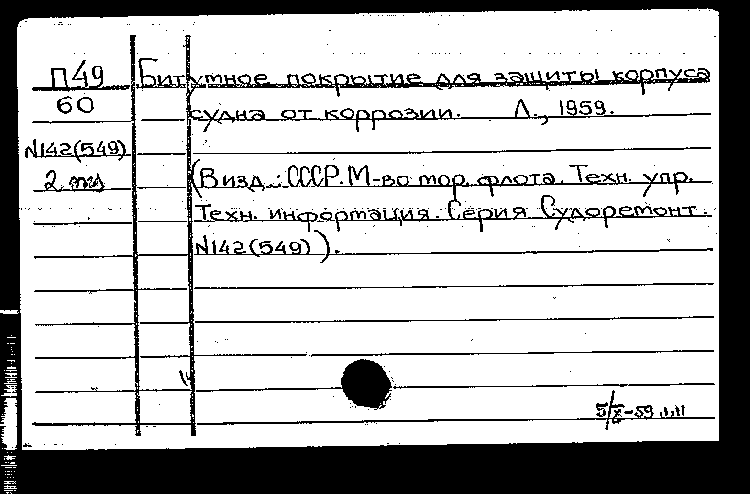 П49
60
N142(549)
2 экз
Битумное покрытие для защиты корпуса
судна от коррозии. Л., 1959.
(В изд.: СССР. М-во мор. флота. Техн. упр.
Техн. информация. Серия Судоремонт.
N142(549)).